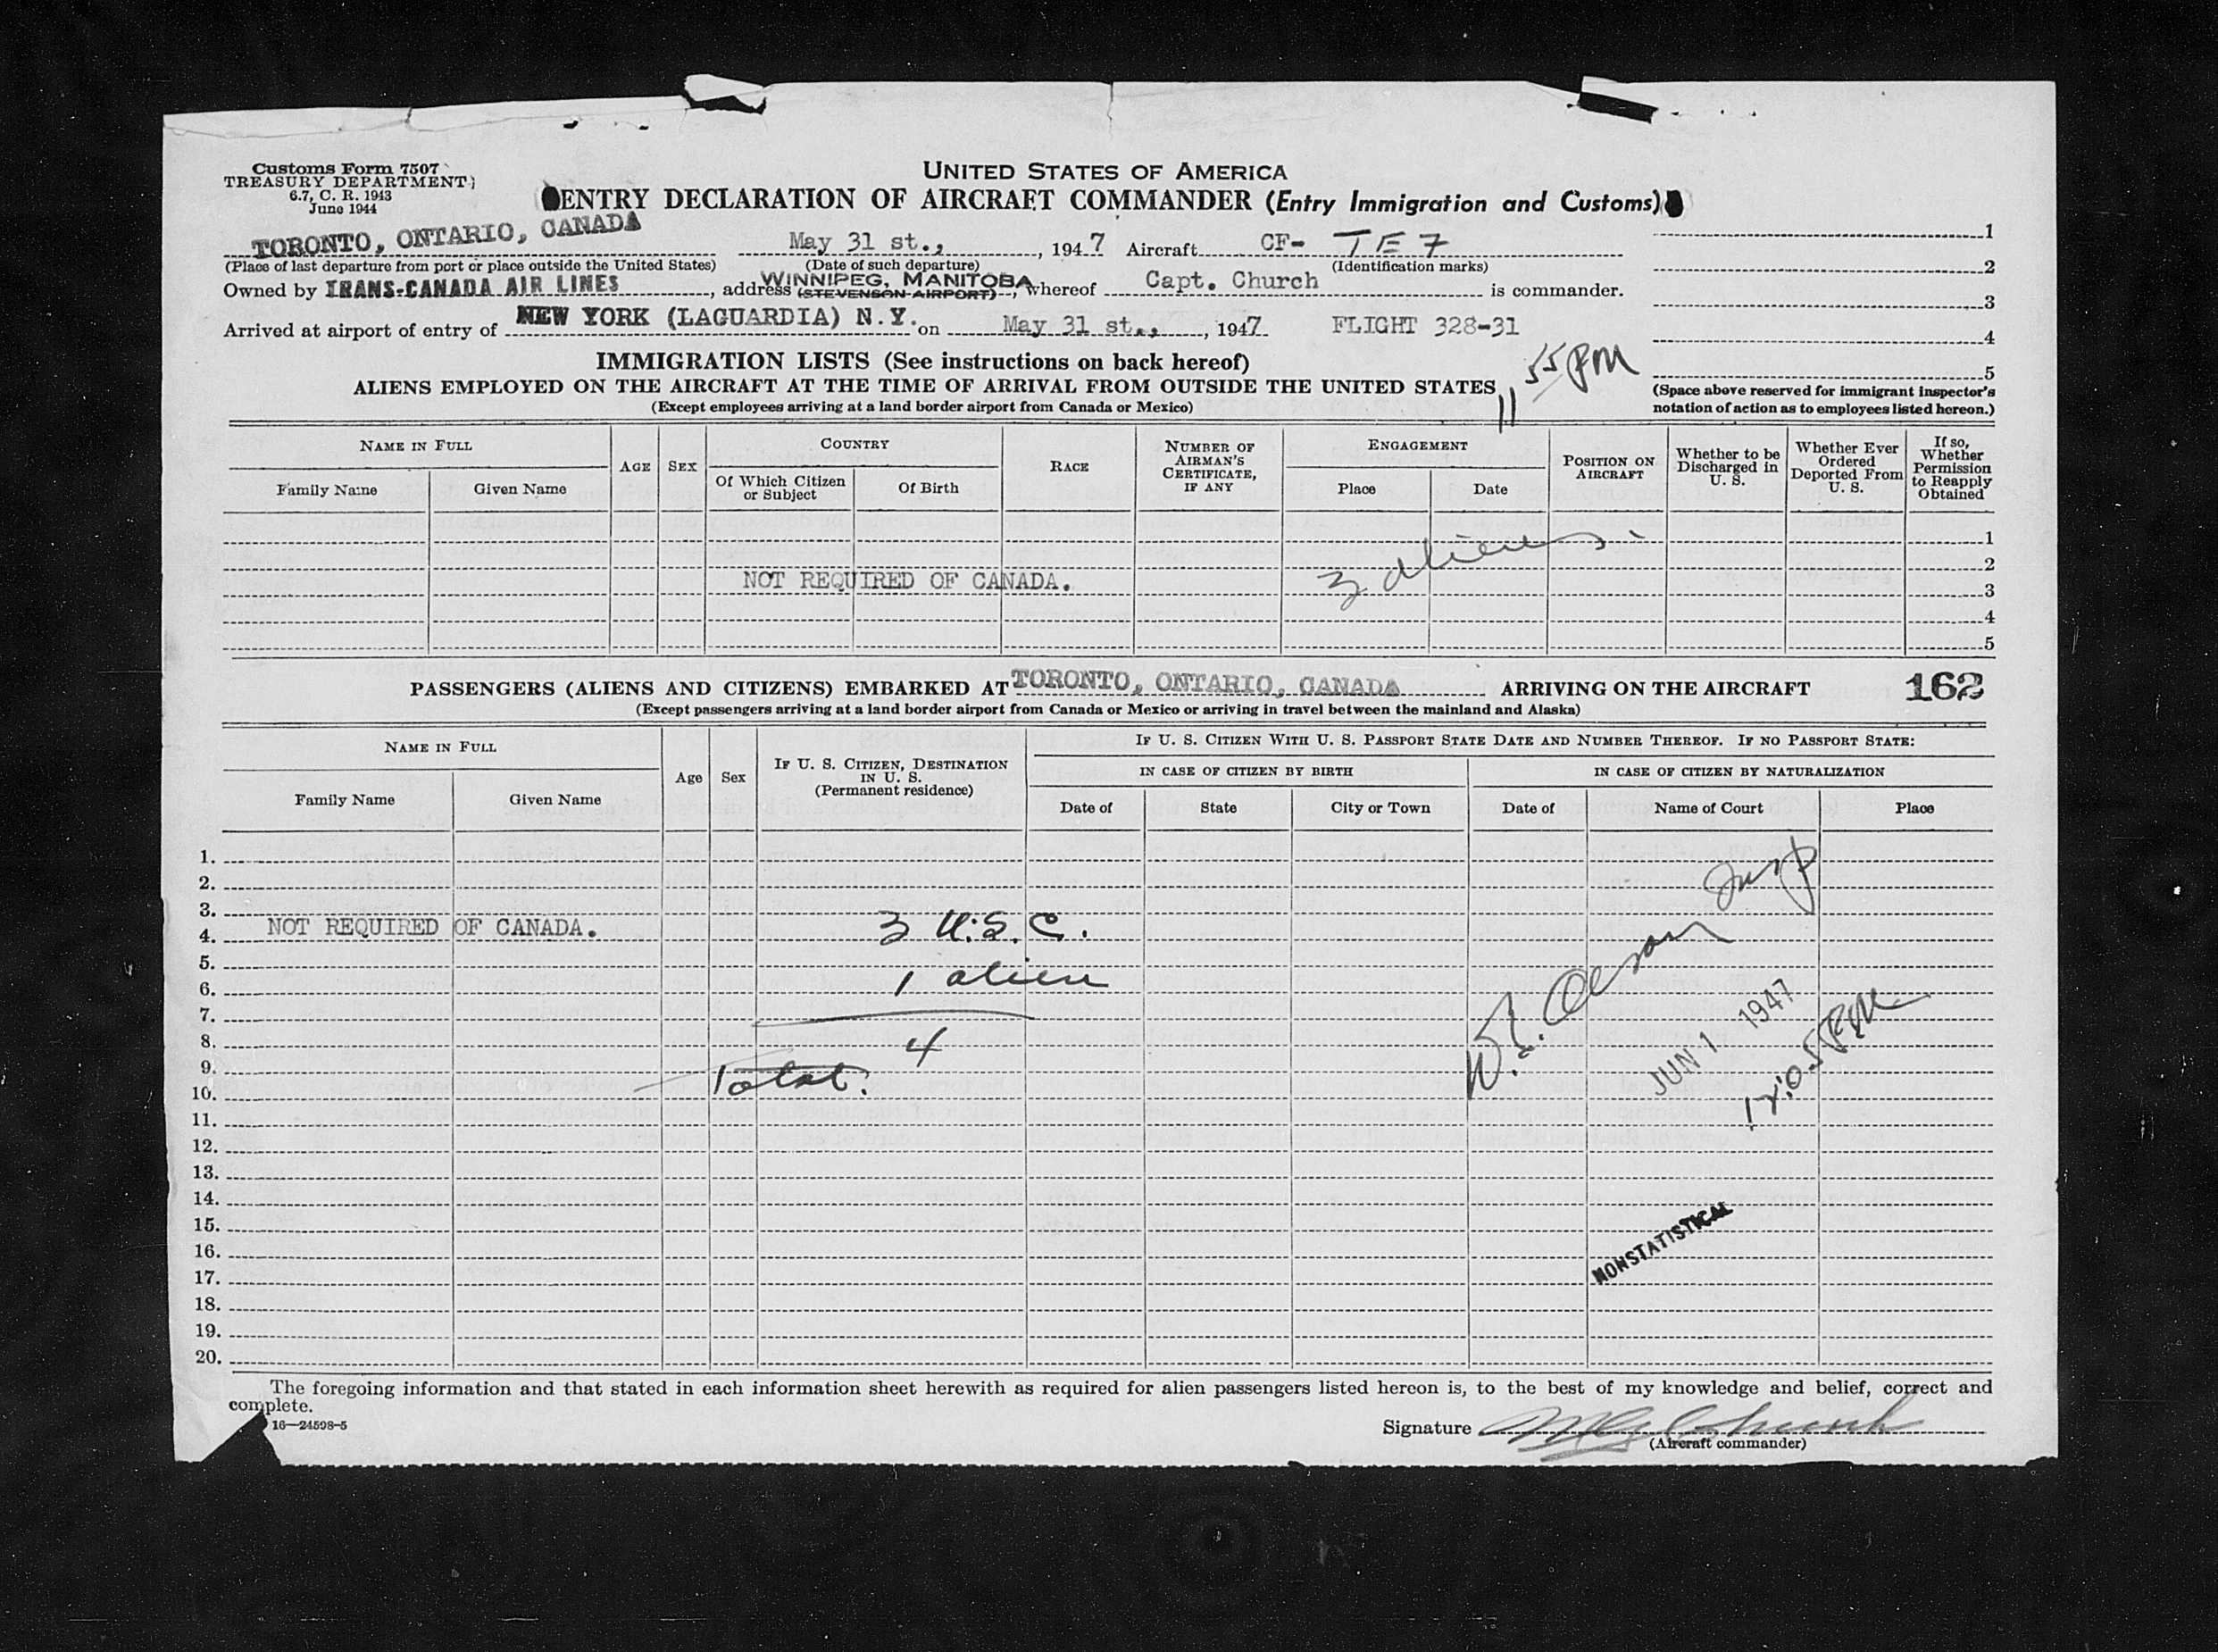 Customs Form 7507
TREASURY DEPARTMENT
6.7, C. R. 1943
June 1944
UNITED STATES OF AMERICA
ENTRY DECLARATION OF AIRCRAFT COMMANDER (Entry Immigration and Customs)
TORONTO, ONTARIO, CANADA May 31 st., , 1947 Aircraft CF- TE7 1
(Place of last departure from port or place outside the United States) (Date of such departure) (Identification marks) 2
Owned by TRANS-CANADA AIR LINES, address WINNIPEG, MANITOBA (STEVENSON AIRPORT), whereof Capt. Church is commander. 3
Arrived at airport of entry of NEW YORK (LAGUARDIA) N.Y. on May 31 st., , 1947 FLIGHT 328-31 4
5
IMMIGRATION LISTS (See instructions on back hereof)
11 55 PM
ALIENS EMPLOYED ON THE AIRCRAFT AT THE TIME OF ARRIVAL FROM OUTSIDE THE UNITED STATES
(Except employees arriving at a land border airport from Canada or Mexico)
(Space above reserved for immigrant inspector's
notation of action as to employees listed hereon.)
NAME IN FULL
Family Name Given Name
AGE SEX
COUNTRY
Of Which Citizen or Subject Of Birth
RACE
NUMBER OF AIRMAN'S CERTIFICATE, IF ANY
ENGAGEMENT
Place Date
POSITION ON AIRCRAFT
Whether to be Discharged in U. S.
Whether Ever Ordered Deported From U. S.
If so, Whether Permission to Reapply Obtained
1
2
NOT REQUIRED OF CANADA. 3 aliens. 3
4
5
PASSENGERS (ALIENS AND CITIZENS) EMBARKED AT TORONTO, ONTARIO, CANADA ARRIVING ON THE AIRCRAFT 162
(Except passengers arriving at a land border airport from Canada or Mexico or arriving in travel between the mainland and Alaska)
NAME IN FULL
Family Name Given Name
Age Sex
IF U. S. CITIZEN, DESTINATION IN U. S.
(Permanent residence)
IF U. S. CITIZEN WITH U. S. PASSPORT STATE DATE AND NUMBER THEREOF. IF NO PASSPORT STATE:
IN CASE OF CITIZEN BY BIRTH IN CASE OF CITIZEN BY NATURALIZATION
Date of State City or Town Date of Name of Court Place
1.
2.
3.
4. NOT REQUIRED OF CANADA. 3 U.S.C.
5.
6. 1 alien
7.
8. 4
9.
10. Total.
11.
12.
13.
14.
15.
16.
17.
18.
19.
20.
JUN 1 1947
12:05
NONSTATISTICAL
The foregoing information and that stated in each information sheet herewith as required for alien passengers listed hereon is, to the best of my knowledge and belief, correct and
complete.
16—24598-5
Signature Church
(Aircraft commander)